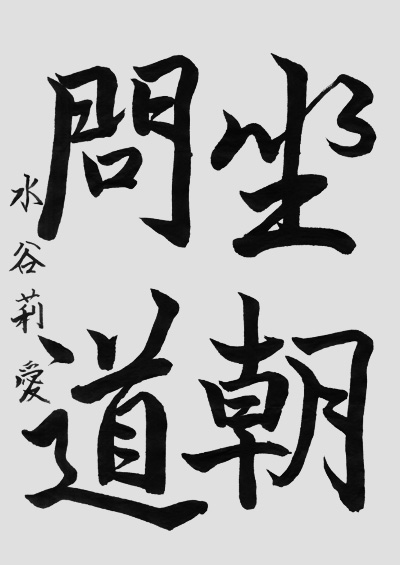 坐朝
問道
水谷莉愛